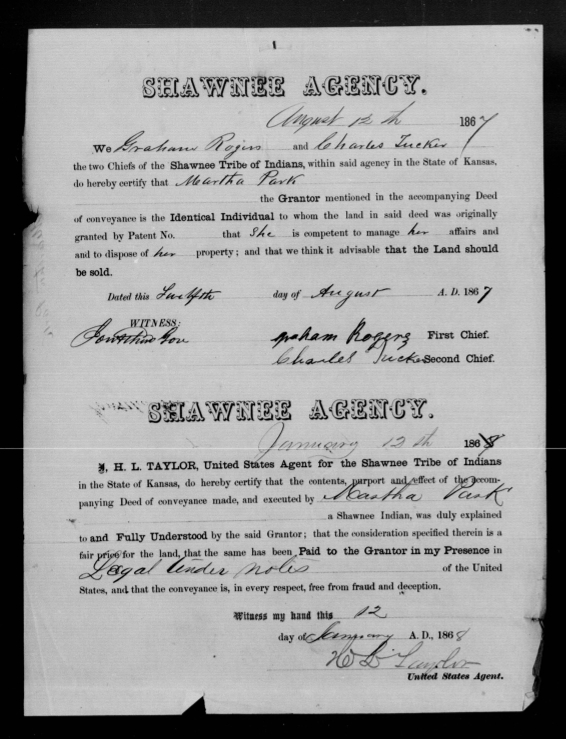 SHAWNEE AGENCY.
August 12th 1867
We Graham Rogers and Charles Tucker
the two Chiefs of the Shawnee Tribe of Indians, within said agency in the State of Kansas,
do hereby certify that Martha Park
the Grantor mentioned in the accompanying Deed
of conveyance is the Identical Individual to whom the land in said deed was originally
granted by Patent No. that She is competent to manage her affairs and
and to dispose of her property; and that we think it advisable that the Land should
be sold.
Dated this Twelfth day of August A. D. 1867
WITNESS:
Jonathan Gore Graham Rogers First Chief.
Charles Tucker Second Chief.
SHAWNEE AGENCY.
January 12th 1868
I, H. L. TAYLOR, United States Agent for the Shawnee Tribe of Indians
in the State of Kansas, do hereby certify that the contents, purport and effect of the accom-
panying Deed of conveyance made, and executed by Martha Park
a Shawnee Indian, was duly explained
to and Fully Understood by the said Grantor; that the consideration specified therein is a
fair price for the land, that the same has been Paid to the Grantor in my Presence in
Legal Tender notes of the United
States, and that the conveyance is, in every respect, free from fraud and deception.
Witness my hand this 12
day of January A. D., 1868
H L Taylor
United States Agent.